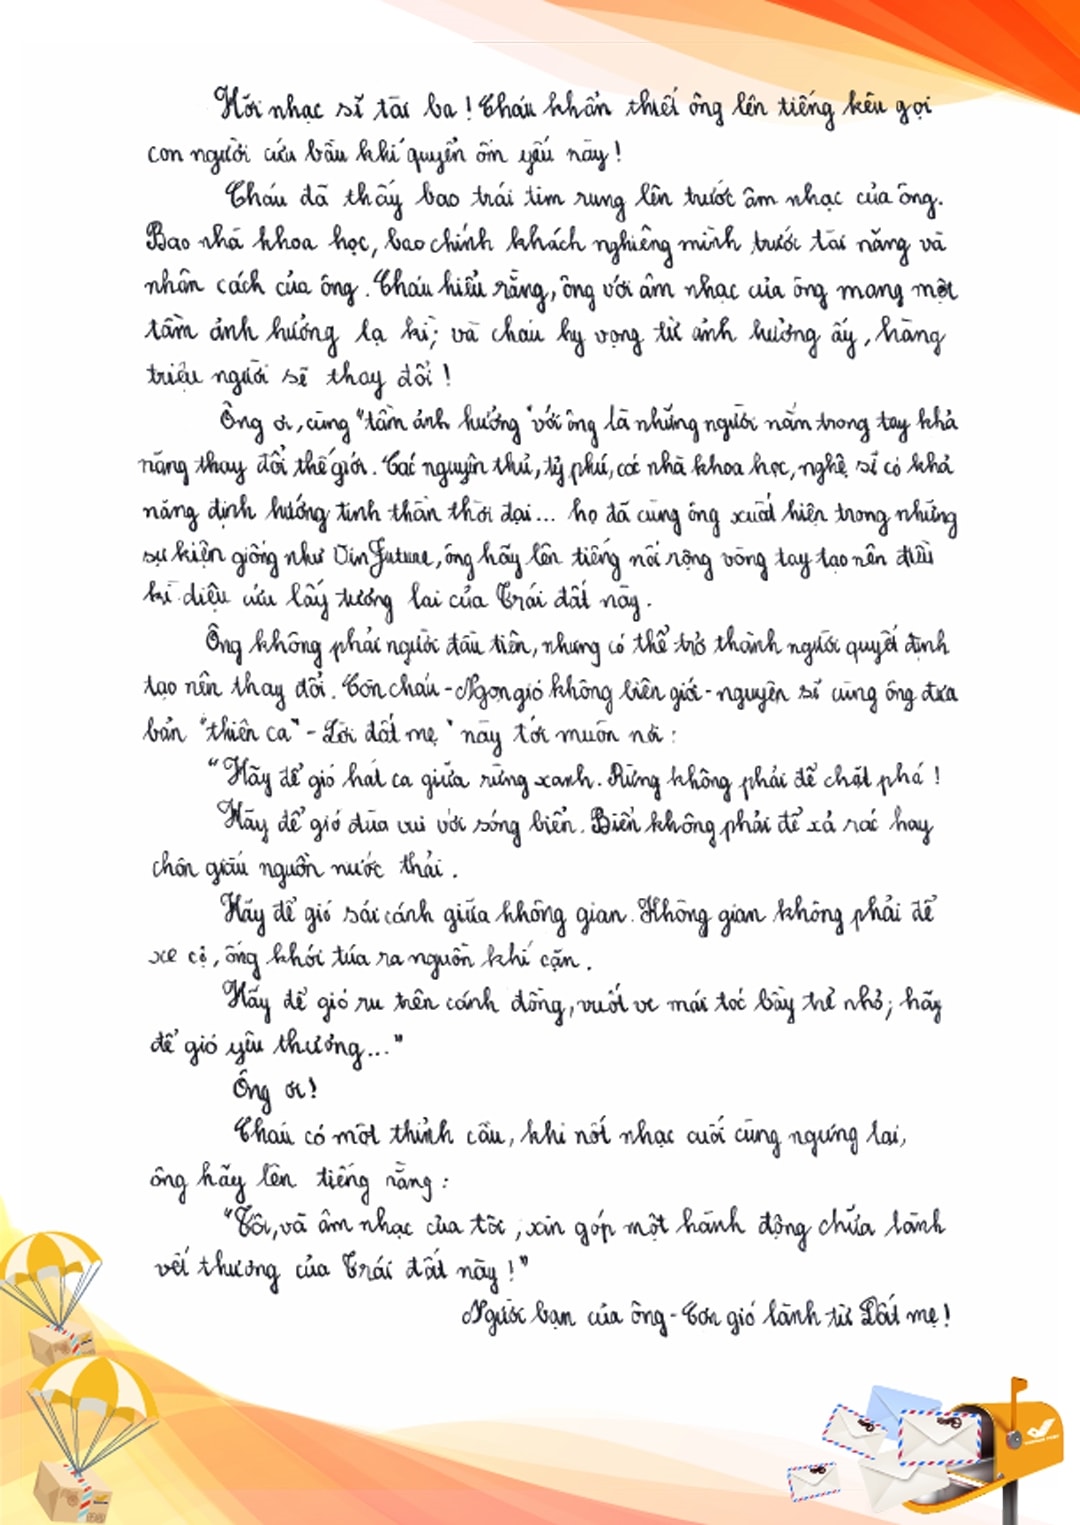 Hỡi nhạc sĩ tài ba! Cháu khẩn thiết ông lên tiếng kêu gọi
con người cứu bầu khí quyển ốm yếu này!
Cháu đã thấy bao trái tim rung lên trước âm nhạc của ông.
Bao nhà khoa học, bao chính khách nghiêng mình trước tài năng và
nhân cách của ông. Cháu hiểu rằng, ông với âm nhạc của ông mang một
tầm ảnh hưởng lạ kì; và cháu hy vọng từ ảnh hưởng ấy, hàng
triệu người sẽ thay đổi!
Ông ơi, cùng "tầm ảnh hưởng" với ông là những người nắm trong tay khả
năng thay đổi thế giới. Các nguyên thủ, tỷ phú, các nhà khoa học, nghệ sĩ có khả
năng định hướng tinh thần thời đại... họ đã cùng ông xuất hiện trong những
sự kiện giống như VinFuture, ông hãy lên tiếng nới rộng vòng tay tạo nên điều
kì diệu cứu lấy tương lai của Trái đất này.
Ông không phải người đầu tiên, nhưng có thể trở thành người quyết định
tạo nên thay đổi. Còn cháu - Ngọn gió không biên giới - nguyện sẽ cùng ông đưa
bản "thiên ca" - Lời đất mẹ " này tới muôn nơi:
"Hãy để gió hát ca giữa rừng xanh. Rừng không phải để chặt phá!
Hãy để gió đùa vui với sóng biển. Biển không phải để xả rác hay
chôn giấu nguồn nước thải.
Hãy để gió sải cánh giữa không gian. Không gian không phải để
xe cộ, ống khói túa ra nguồn khí cặn.
Hãy để gió ru trên cánh đồng, vuốt ve mái tóc bầy trẻ nhỏ; hãy
để gió yêu thương..."
Ông ơi!
Cháu có một thỉnh cầu, khi nốt nhạc cuối cùng ngưng lại,
ông hãy lên tiếng rằng:
"Tôi, và âm nhạc của tôi, xin góp một hành động chữa lành
vết thương của Trái đất này!"
Người bạn của ông - Cơn gió lành từ Đất mẹ!